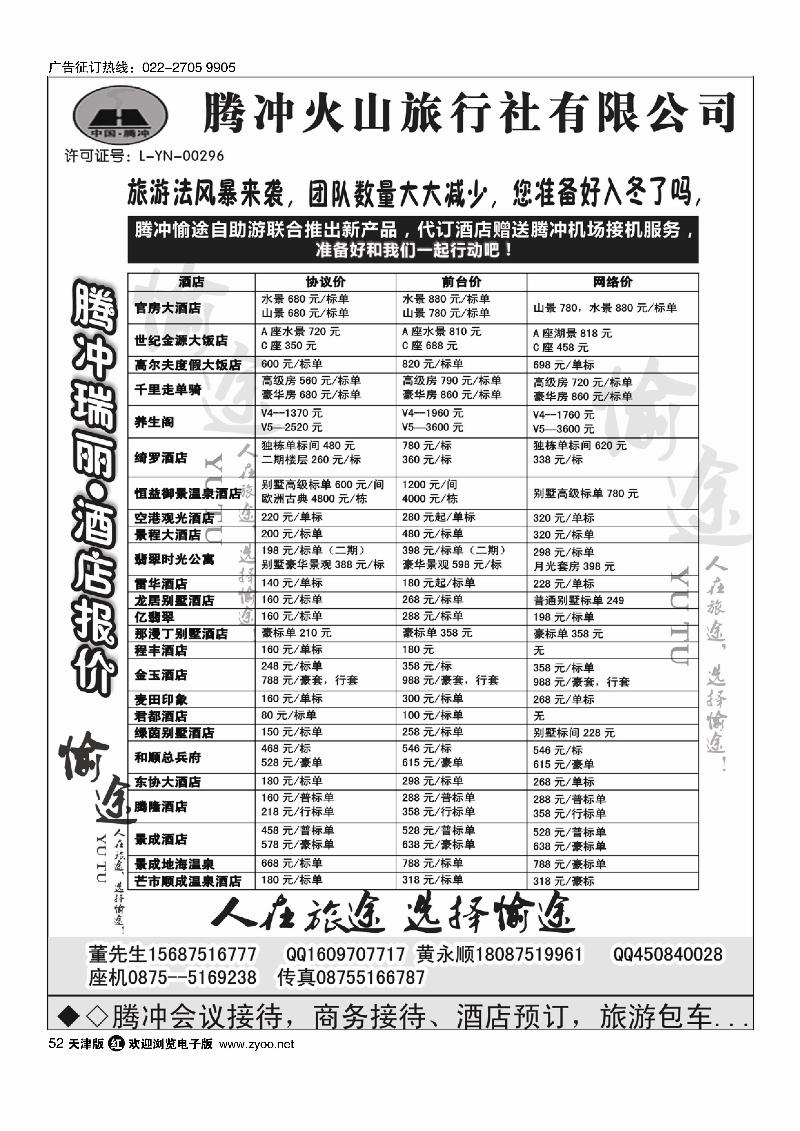 广告征订热线：022-2705 9905
腾冲火山旅行社有限公司
中国·腾冲
许可证号：L-YN-00296
旅游法风暴来袭，团队数量大大减少，您准备好入冬了吗，
腾冲愉途自助游联合推出新产品，代订酒店赠送腾冲机场接机服务，
准备好和我们一起行动吧！
腾冲瑞丽·酒店报价
酒店 协议价 前台价 网络价
官房大酒店 水景 680 元/标单 水景 880 元/标单 山景 780，水景 880 元/标单
山景 680 元/标单 山景 780 元/标单
世纪金源大饭店 A 座水景 720 元 A 座水景 810 元 A 座湖景 818 元
C 座 350 元 C 座 688 元 C 座 458 元
高尔夫度假大饭店 600 元/标单 820 元/标单 698 元/单标
千里走单骑 高级房 560 元/标单 高级房 790 元/标单 高级房 720 元/标单
豪华房 680 元/标单 豪华房 860 元/标单 豪华房 860 元/标单
养生阁 V4--1370 元 V4--1960 元 V4--1760 元
V5--2520 元 V5—3600 元 V5—3600 元
绮罗酒店 独栋单标间 480 元 780 元/标 独栋单标间 620 元
二期楼层 260 元/标 360 元/标 338 元/标
恒益御景温泉酒店 别墅高级标单 600 元/间 1200 元/间 别墅高级标单 780 元
欧洲古典 4800 元/栋 4000 元/栋
空港观光酒店 220 元/单标 280 元起/单标 320 元/单标
景程大酒店 200 元/标单 480 元/标单 320 元/标单
翡翠时光公寓 198 元/标单（二期） 398 元/标单（二期） 298 元/标单
别墅豪华景观 388 元/标 豪华景观 598 元/标 月光套房 398 元
雷华酒店 140 元/单标 180 元起/标单 228 元/单标
龙居别墅酒店 160 元/标单 268 元/标单 普通别墅标单 249
亿翡翠 160 元/标单 288 元/标单 198 元/标单
那漫丁别墅酒店 豪标单 210 元 豪标单 358 元 豪标单 358 元
程丰酒店 160 元/标单 180 元 无
金玉酒店 248 元/标单 358 元/标 358 元/标单
788 元/豪套，行套 988 元/豪套，行套 988 元/豪套，行套
麦田印象 160 元/单标 300 元/标单 268 元/单标
君都酒店 80 元/标单 100 元/标单 无
绿茵别墅酒店 150 元/标单 258 元/标单 别墅标间 228 元
和顺总兵府 468 元/标 546 元/标 546 元/标
528 元/豪单 615 元/豪单 615 元/豪单
东协大酒店 180 元/标单 298 元/标单 268 元/单标
腾隆酒店 160 元/普标单 288 元/普标单 288 元/普标单
218 元/行标单 358 元/行标单 358 元/行标单
景成酒店 458 元/普标单 528 元/普标单 528 元/普标单
578 元/豪标单 638 元/豪标单 638 元/豪标单
景成地海温泉 668 元/标单 788 元/标单 788 元/豪标单
芒市顺成温泉酒店 180 元/标单 318 元/标单 318 元/豪标
愉途
YU TU
人在旅途，选择愉途！
愉途
YU TU
人在旅途，选择愉途！
愉途
YU TU
人在旅途，选择愉途！
人在旅途 选择愉途
董先生15687516777 QQ1609707717 黄永顺18087519961 QQ450840028
座机0875--5169238 传真08755166787
◆◇腾冲会议接待，商务接待、酒店预订，旅游包车...
52 天津版 红 欢迎浏览电子版 www.zyoo.net